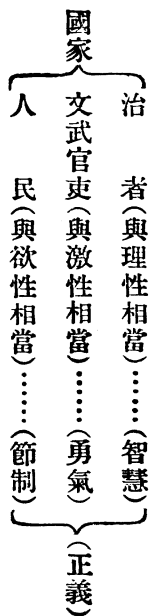 國家
治者（與理性相當）……（智慧）
文武官吏（與激性相當）……（勇氣）
人民（與欲性相當）……（節制）
（正義）